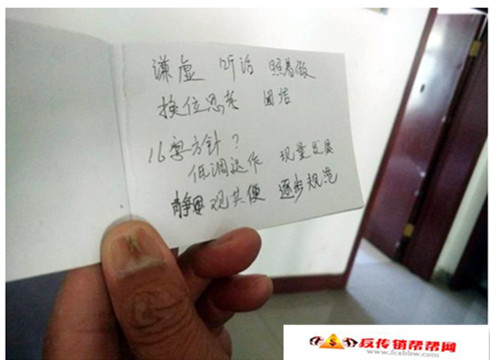 谦虚 听话 照着做
换位思考 团结
16字方针？
低调运作 现量发展
静观其便 逐步规范
反传销帮帮网
www.fcxbbw.com